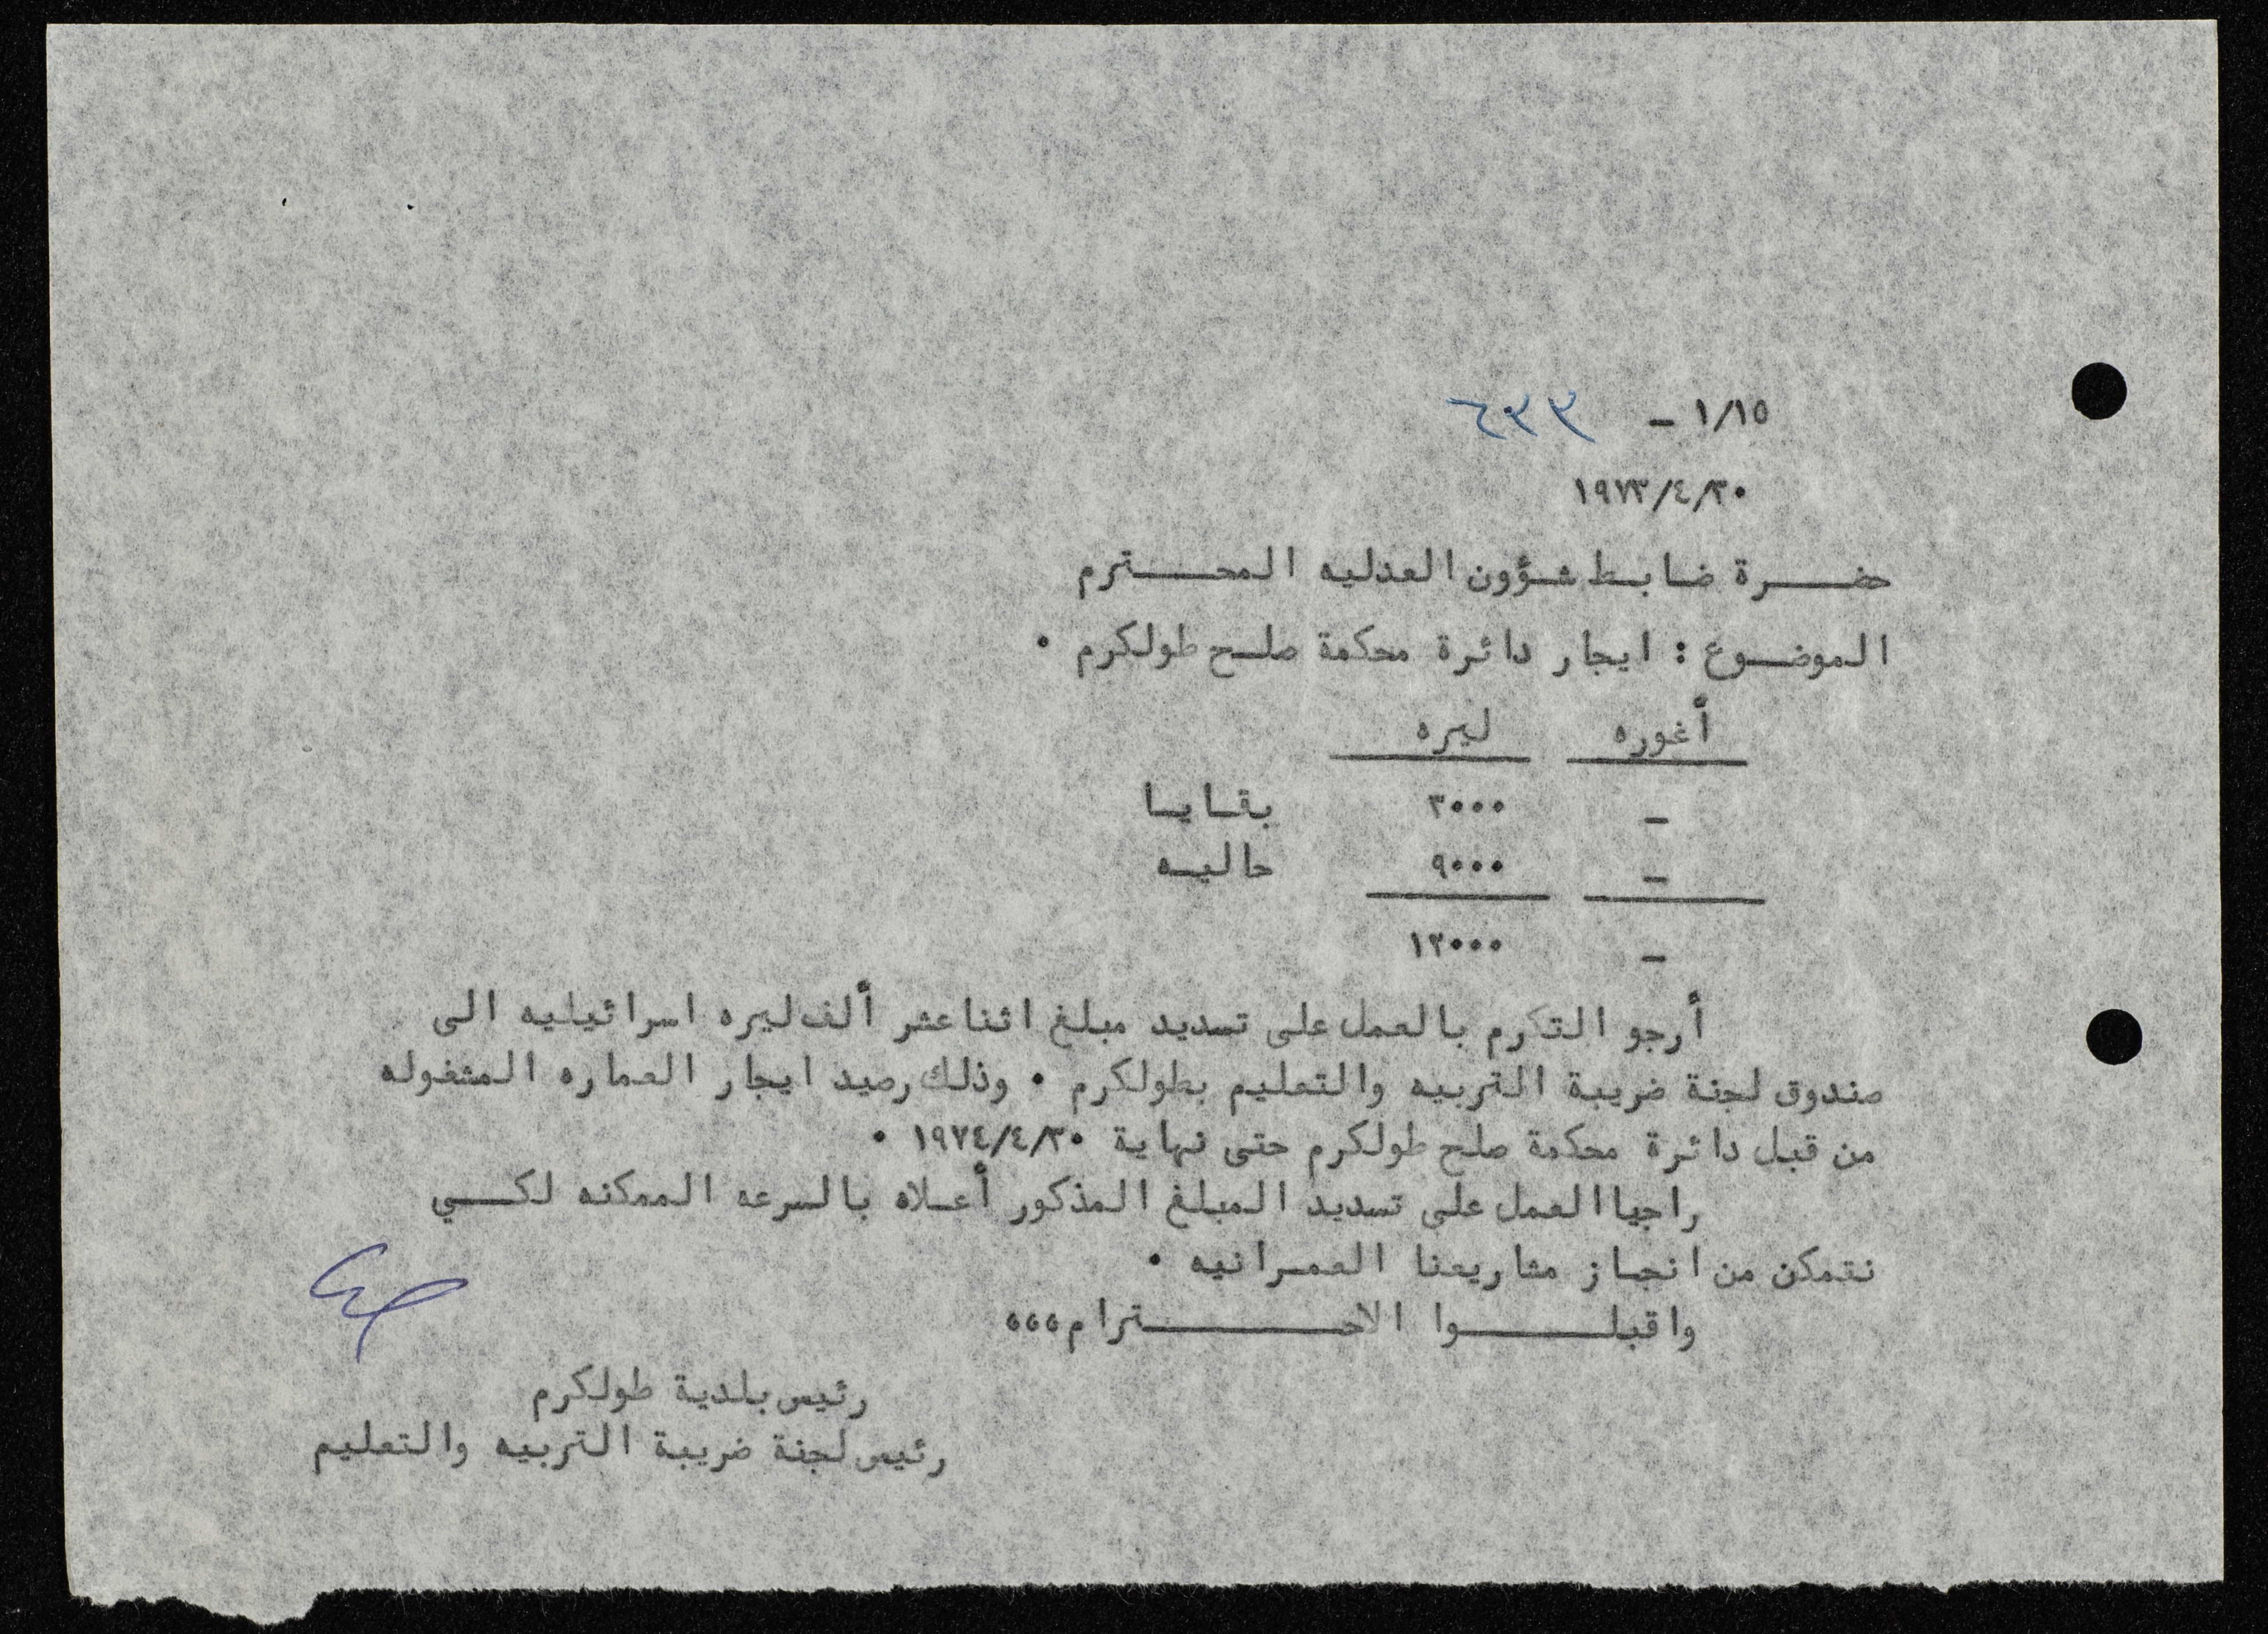 ١/١٥ - ٦٣٣
١٩٧٣/٤/٣٠
حضرة ضابط شؤون العدليه المحترم
الموضوع : ايجار دائرة محكمة صلح طولكرم ٠
أغوره ليره
- ٣٠٠٠ بقايا
- ٩٠٠٠ حاليه
- ١٢٠٠٠
أرجو التكرم بالعمل على تسديد مبلغ اثنا عشر ألف ليره اسرائيليه الى
صندوق لجنة ضريبة التربيه والتعليم بطولكرم ٠ وذلك رصيد ايجار العماره المشغوله
من قبل دائرة محكمة صلح طولكرم حتى نهاية ١٩٧٤/٤/٣٠ ٠
راجيا العمل على تسديد المبلغ المذكور أعلاه بالسرعه الممكنه لكي
نتمكن من انجاز مشاريعنا العمرانيه ٠
واقبلوا الاحترام،،،
رئيس بلدية طولكرم
رئيس لجنة ضريبة التربيه والتعليم